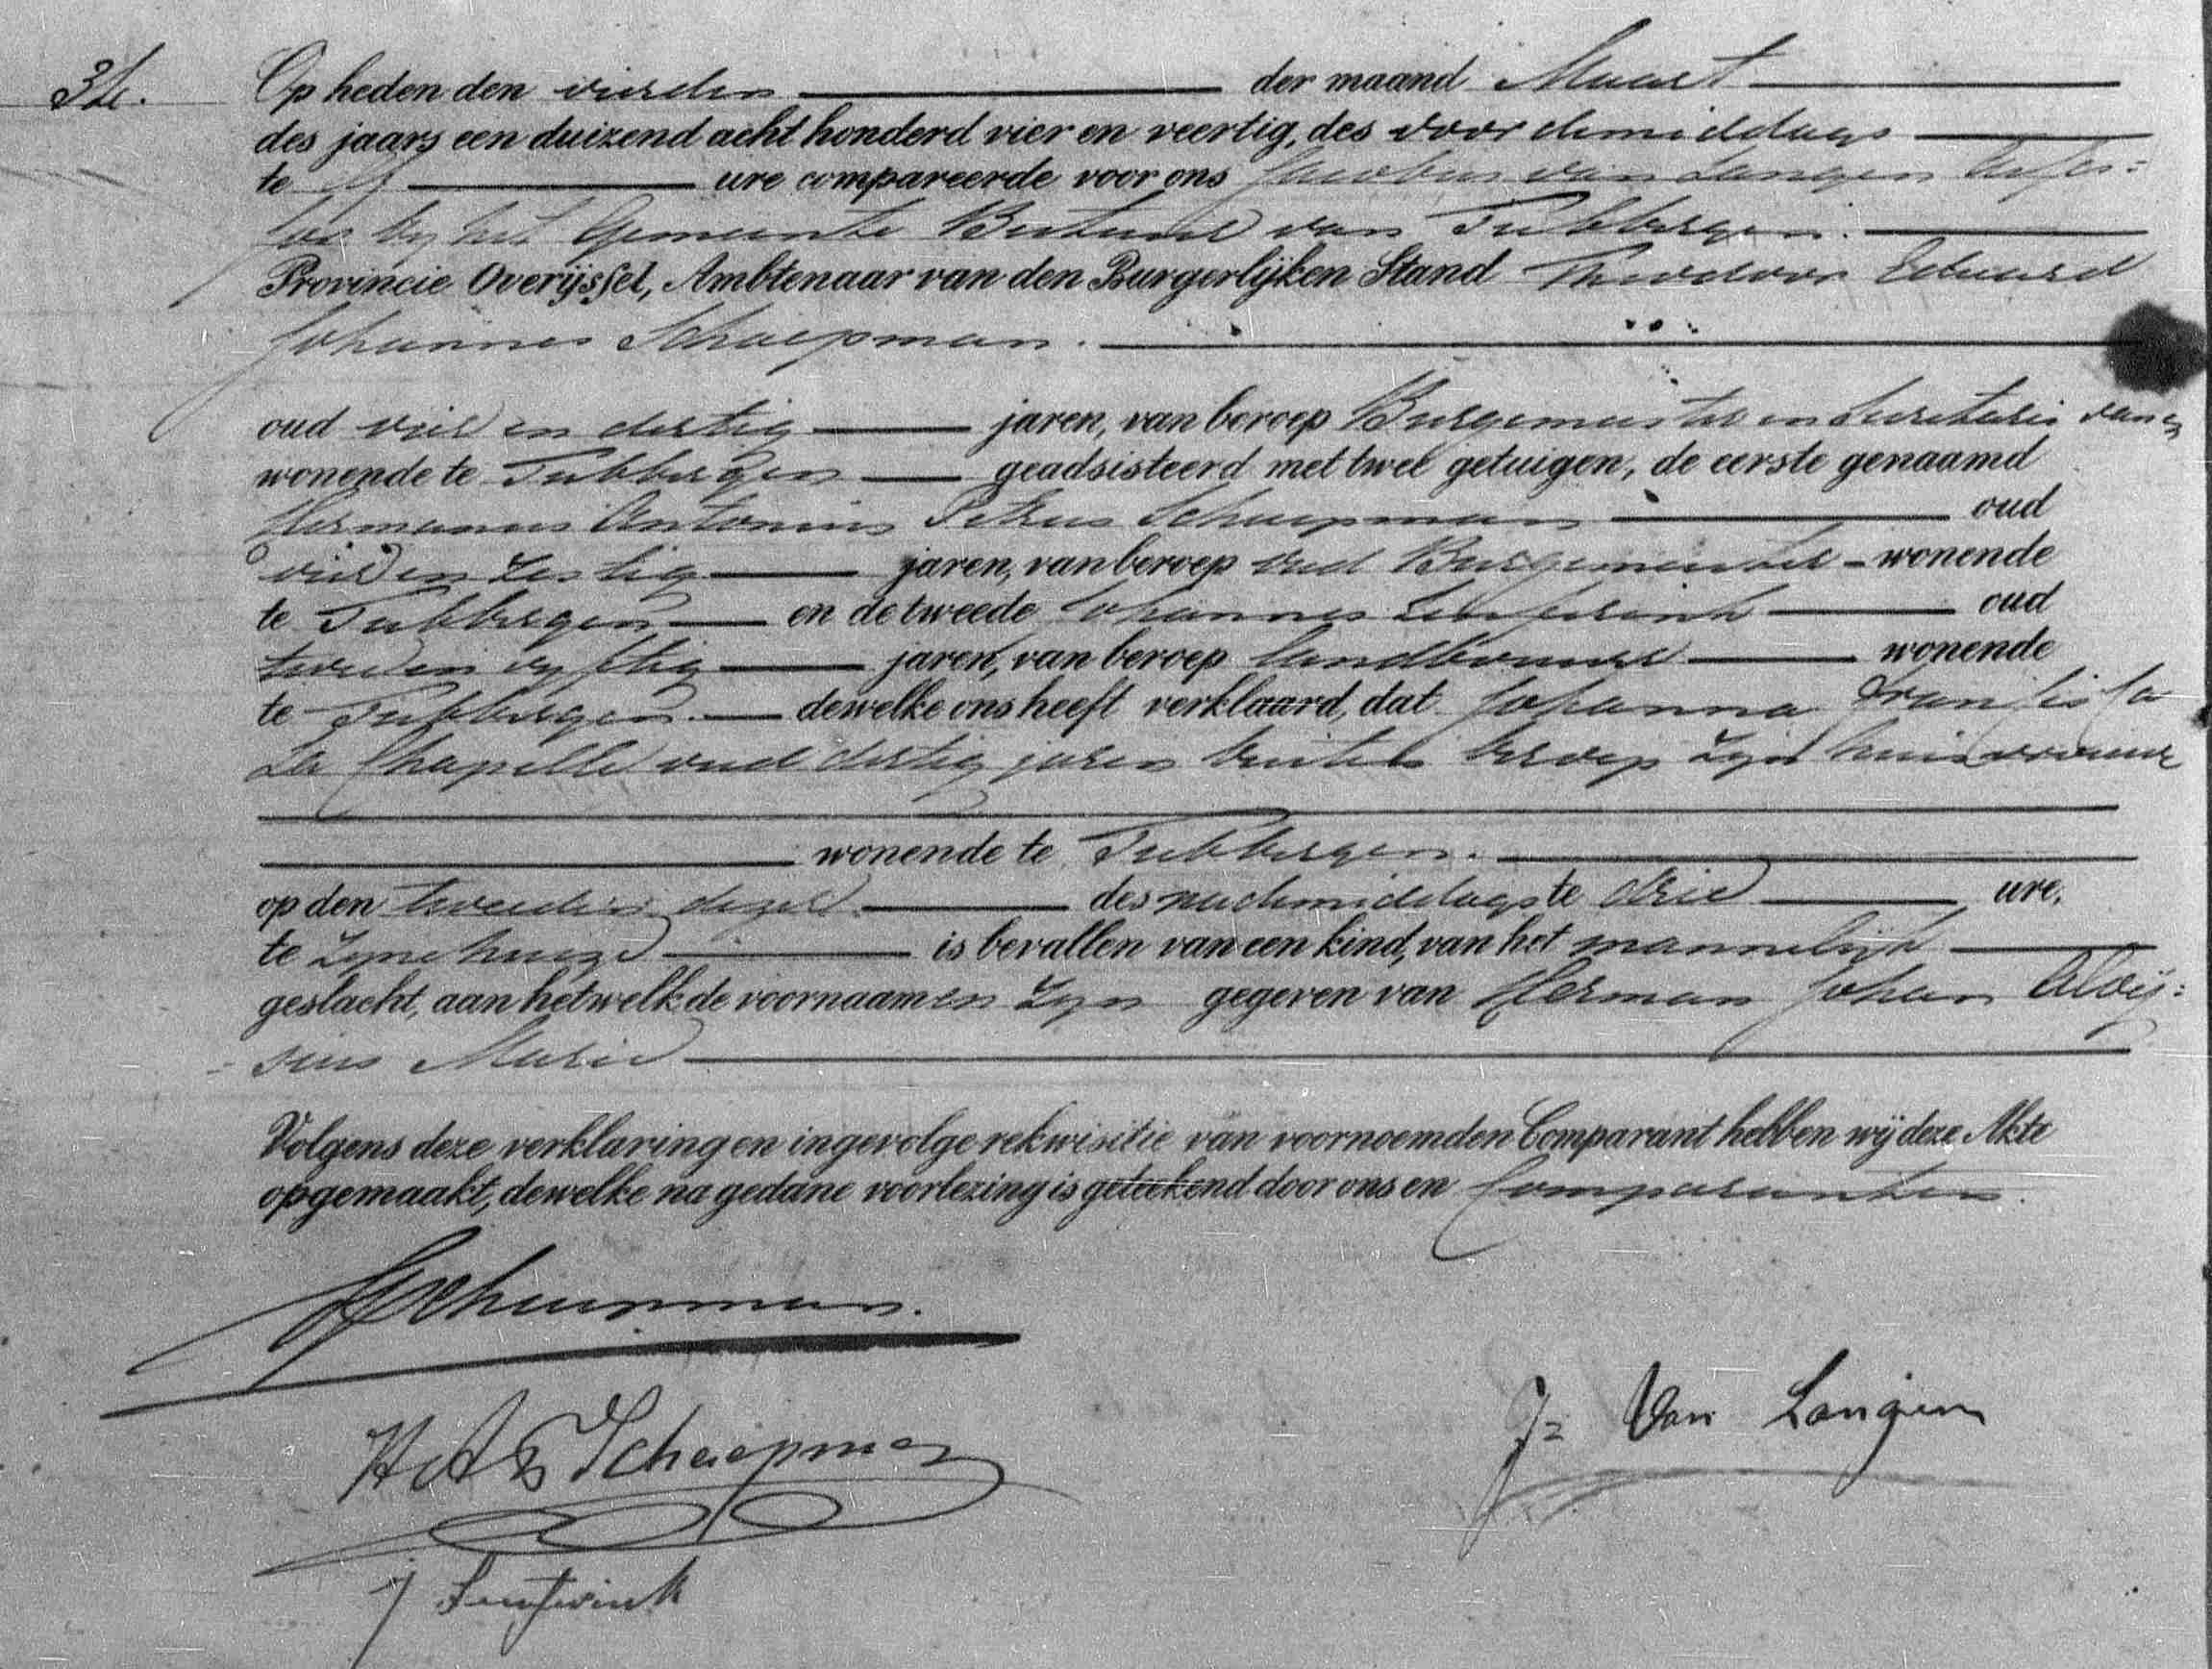 Op heden den vierden der maand Maart
des jaars een duizend acht honderd vier en veertig, des voordemiddags
te elf ure compareerde voor ons Jacobus van Langen Asses=
sor by het Gemeente Bestuur van Tubbergen.
Provincie Overijssel, Ambtenaar van den Burgerlijken Stand Theodoor Eduard
Johannes Schaepman.
oud vier en dertig jaren, van beroep Burgemeester en Secretaris van en
wonende te Tubbergen geadsisteerd met twee getuigen, de eerste genaamd
Hermanus Antonius Petrus Schaepman oud
vier en zestig jaren, van beroep oud Burgemeester wonende
te Tubbergen en de tweede Johannes oud
twee en vyftig jaren, van beroep landbouwer wonende
te Tubbergen. dewelke ons heeft verklaard, dat Johanna Fransisca
La Chapelle oud dertig jaren buiten beroep zyn huisvrouw
wonende te Tubbergen.
op den tweeden dezer des nachmiddags te drie ure,
te zyne huize is bevallen van een kind, van het mannelijk
geslacht, aan hetwelk de voornaamen zyn gegeven van Herman Johan Aloÿ=
sius Marie
Volgens deze verklaring en ingevolge rekwisitie van voornoemden Comparant hebben wij deze Akte
opgemaakt, dewelke na gedane voorlezing is geteekend door ons en Comparanten.
Schaepman.
J= Van Langen
HAP Schaepman
J